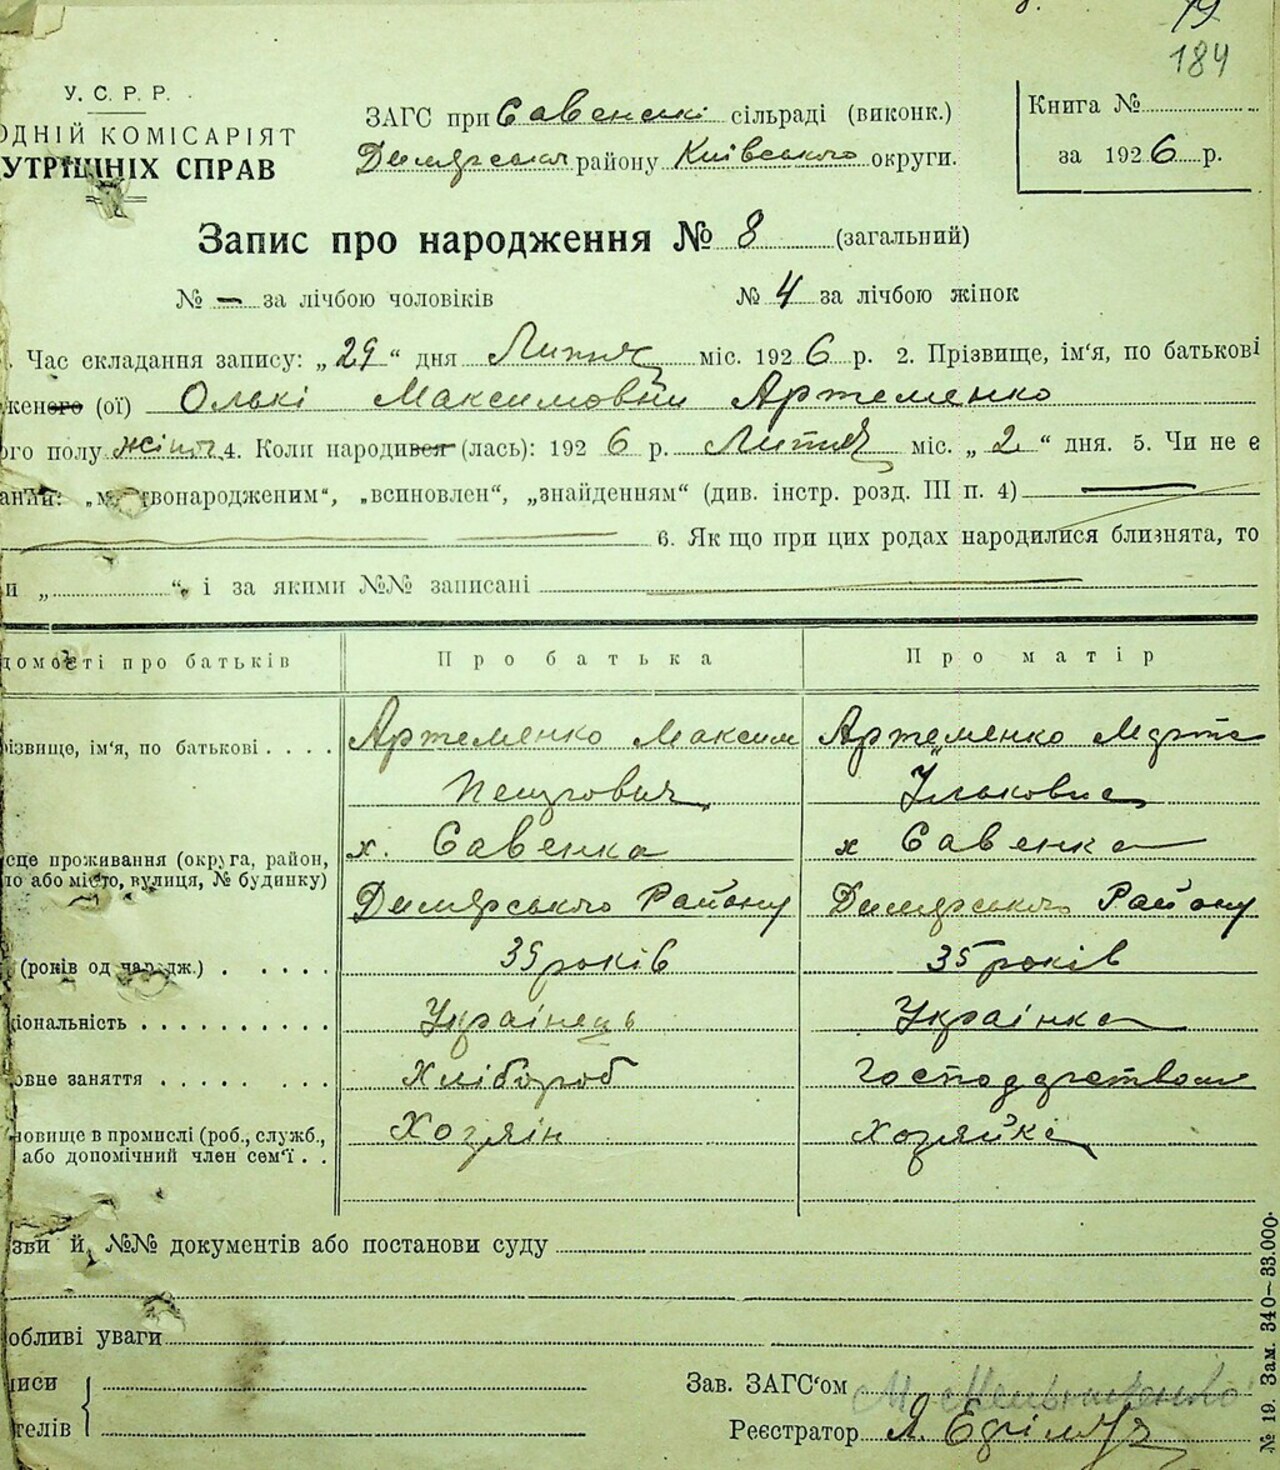 19
184
У. С. Р. Р.
ОДНІЙ КОМІСАРІЯТ
УТРІШНІХ СПРАВ
ЗАГС при Савенські сільраді (виконк.)
Димярськ району Київського округи.
Книга №
за 1926 р.
Запис про народження № 8 (загальний)
№ — за лічбою чоловіків № 4 за лічбою жінок
. Час складання запису: „29“ дня Липня міс. 1926 р. 2. Прізвище, ім‘я, по батькові
женого (ої) Олькі Максимовни Артеменко
ого полу жіноч. 4. Коли народився (лась): 1926 р. Липня міс. „2“ дня. 5. Чи не є
аний: „мертвонародженим“, „всиновлен“, „знайденням“ (див. інстр. розд. III п. 4) —
6. Як що при цих родах народилися близнята, то
и „ “, і за якими №№ записані
домості про батьків Про батька Про матір
різвище, ім‘я, по батькові . . . . Артеменко Максим Артеменко Марта
Петрович Ільковна
сце проживання (округа, район, х. Савенка х Савенка
ло або місто, вулиця, № будинку)
Димярського Району Димярського Району
(років од народж.) . . . . . 35 років 35 років
ціональність . . . . . . . . . . Українець Українка
овне заняття . . . . . . . . Хлібороб Господарством
новище в промислі (роб., служб., Хозяін Хозяйка
або допомічний член сем‘ї . .
зви й №№ документів або постанови суду
обливі уваги
писи
телів
Зав. ЗАГС‘ом
Реєстратор Л.
№ 19. Зам. 340—33.000.